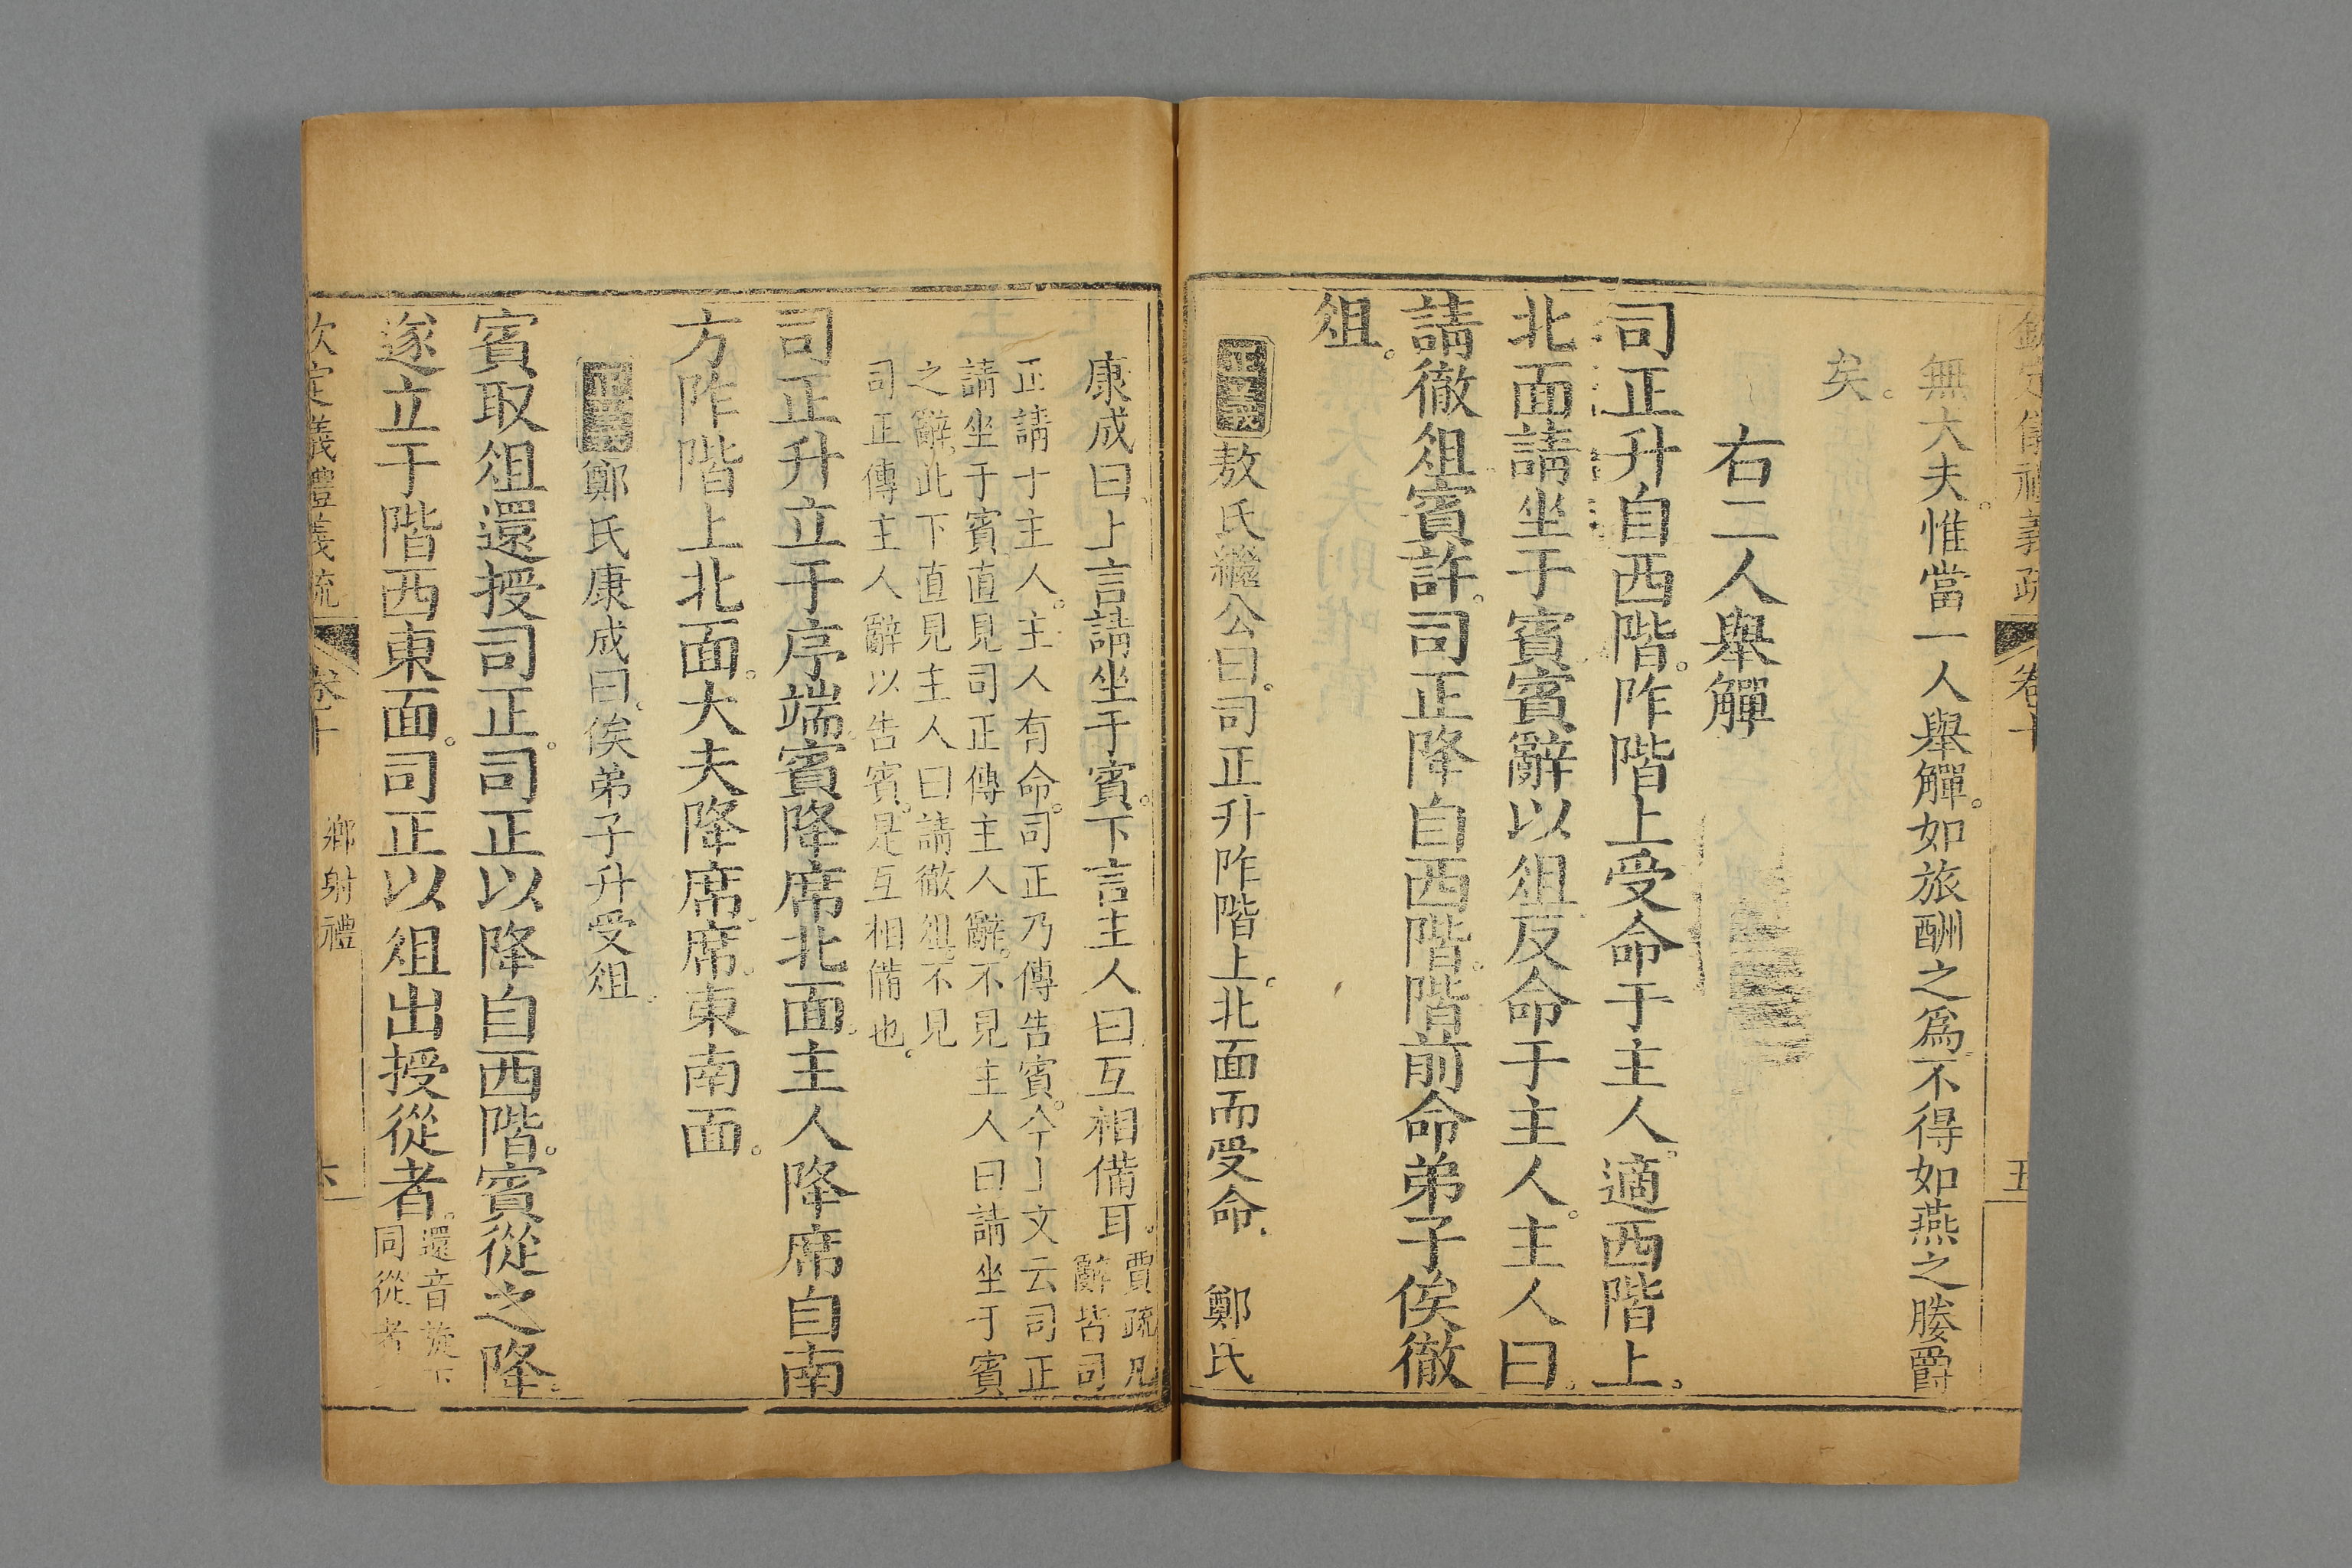 欽定儀禮義疏 卷十 五
無大夫。惟當一人舉觶。如旅酬之爲。不得如燕之媵爵
矣。
右二人舉觶
司正升自西階。阼階上受命于主人。適西階上。
北面請坐于賓。賓辭以俎。反命于主人。主人曰。
請徹俎。賓許。司正降自西階。階前命弟子俟徹
俎。
正義 敖氏繼公曰。司正升阼階上。北面而受命。 鄭氏
康成曰。上言請坐于賓。下言主人曰。互相備耳。賈疏凡
辭皆司
正請于主人。主人有命。司正乃傳告賓。今上文云司正
請坐于賓。直見司正傳主人辭。不見主人曰請坐于賓
之辭。此下直見主人曰請徹俎。不見
司正傳主人辭以告賓。是互相備也。
司正升立于序端。賓降席北面。主人降席自南
方。阼階上北面。大夫降席。席東南面。
正義 鄭氏康成曰。俟弟子升受俎。
賓取俎還授司正。司正以降自西階。賓從之降。
遂立于階西東面。司正以俎出授從者。還音旋下
同從者
欽定義禮義疏 卷十 鄉射禮 六